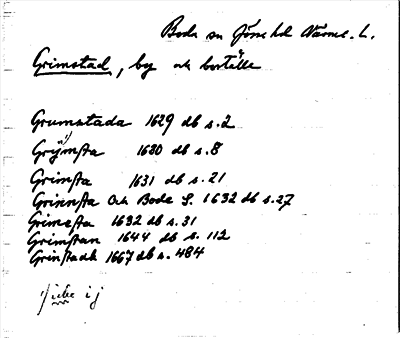 Boda sn Jönch l Närme. L.
Grimstad, by och boställe
Grumstada 1629 db s. 2
Grÿmsta 1630 db s. 8
Grimsta 1631 db s. 21
Grinnsta och Bode S. 1632 db s. 27
Grimesta 1632 db s. 31
Grimstan 1644 db s. 112
Grinstadh 1667 db s. 484
icke ij